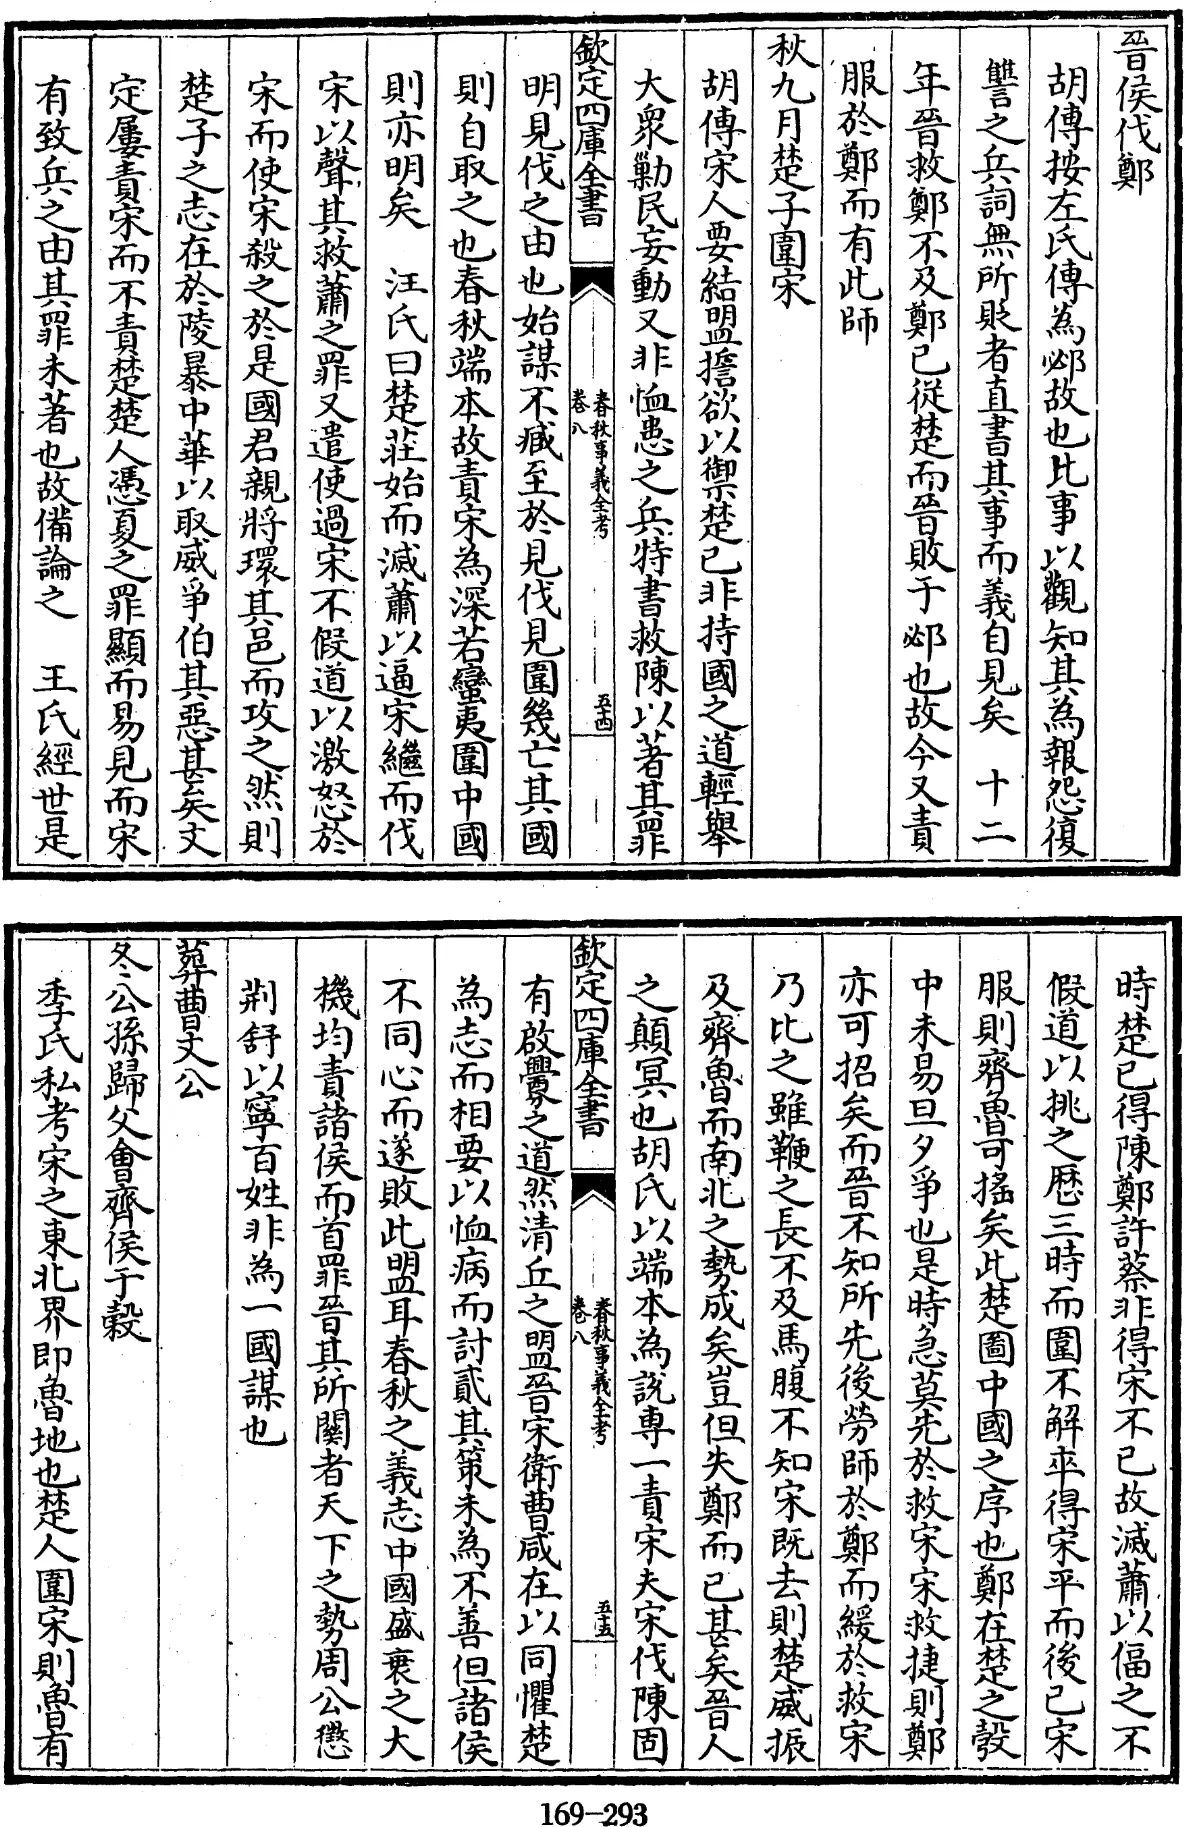 晉侯伐鄭
胡傳按左氏傳為邲故也比事以觀知其為報怨復
讐之兵詞無所貶者直書其事而義自見矣 十二
年晉救鄭不及鄭已從楚而晉敗于邲也故今又責
服於鄭而有此師
秋九月楚子圍宋
胡傳宋人要結盟擔欲以禦楚已非持國之道輕舉
大衆勦民妄動又非恤患之兵特書救陳以著其罪
欽定四庫全書
春秋事義全考
卷八
五十四
明見伐之由也始謀不臧至於見伐見圍幾亡其國
則自取之也春秋端本故責宋為深若蠻夷圍中國
則亦明矣 汪氏曰楚莊始而滅蕭以逼宋繼而伐
宋以聲其救蕭之罪又遣使過宋不假道以激怒於
宋而使宋殺之於是國君親將環其邑而攻之然則
楚子之志在於陵暴中華以取威爭伯其惡甚矣文
定屢責宋而不責楚楚人憑夏之罪顯而易見而宋
有致兵之由其罪未著也故備論之 王氏經世是
時楚已得陳鄭許蔡非得宋不已故滅蕭以偪之不
假道以挑之歷三時而圍不解卒得宋平而後已宋
服則齊魯可搖矣此楚圖中國之序也鄭在楚之彀
中未易旦夕爭也是時急莫先於救宋宋救捷則鄭
亦可招矣而晉不知所先後勞師於鄭而緩於救宋
乃比之雖鞭之長不及馬腹不知宋既去則楚威振
及齊魯而南北之勢成矣豈但失鄭而已甚矣晉人
之顛冥也胡氏以端本為説專一責宋夫宋伐陳固
欽定四庫全書
春秋事義全考
卷八
五十五
有啟釁之道然清丘之盟晉宋衛曹咸在以同懼楚
為志而相要以恤病而討貳其策未為不善但諸侯
不同心而遂敗此盟耳春秋之義志中國盛衰之大
機均責諸侯而首罪晉其所關者天下之勢周公懲
荆舒以寧百姓非為一國謀也
葬曹文公
冬公孫歸父會齊侯于穀
季氏私考宋之東北界即魯地也楚人圍宋則魯有
169-293